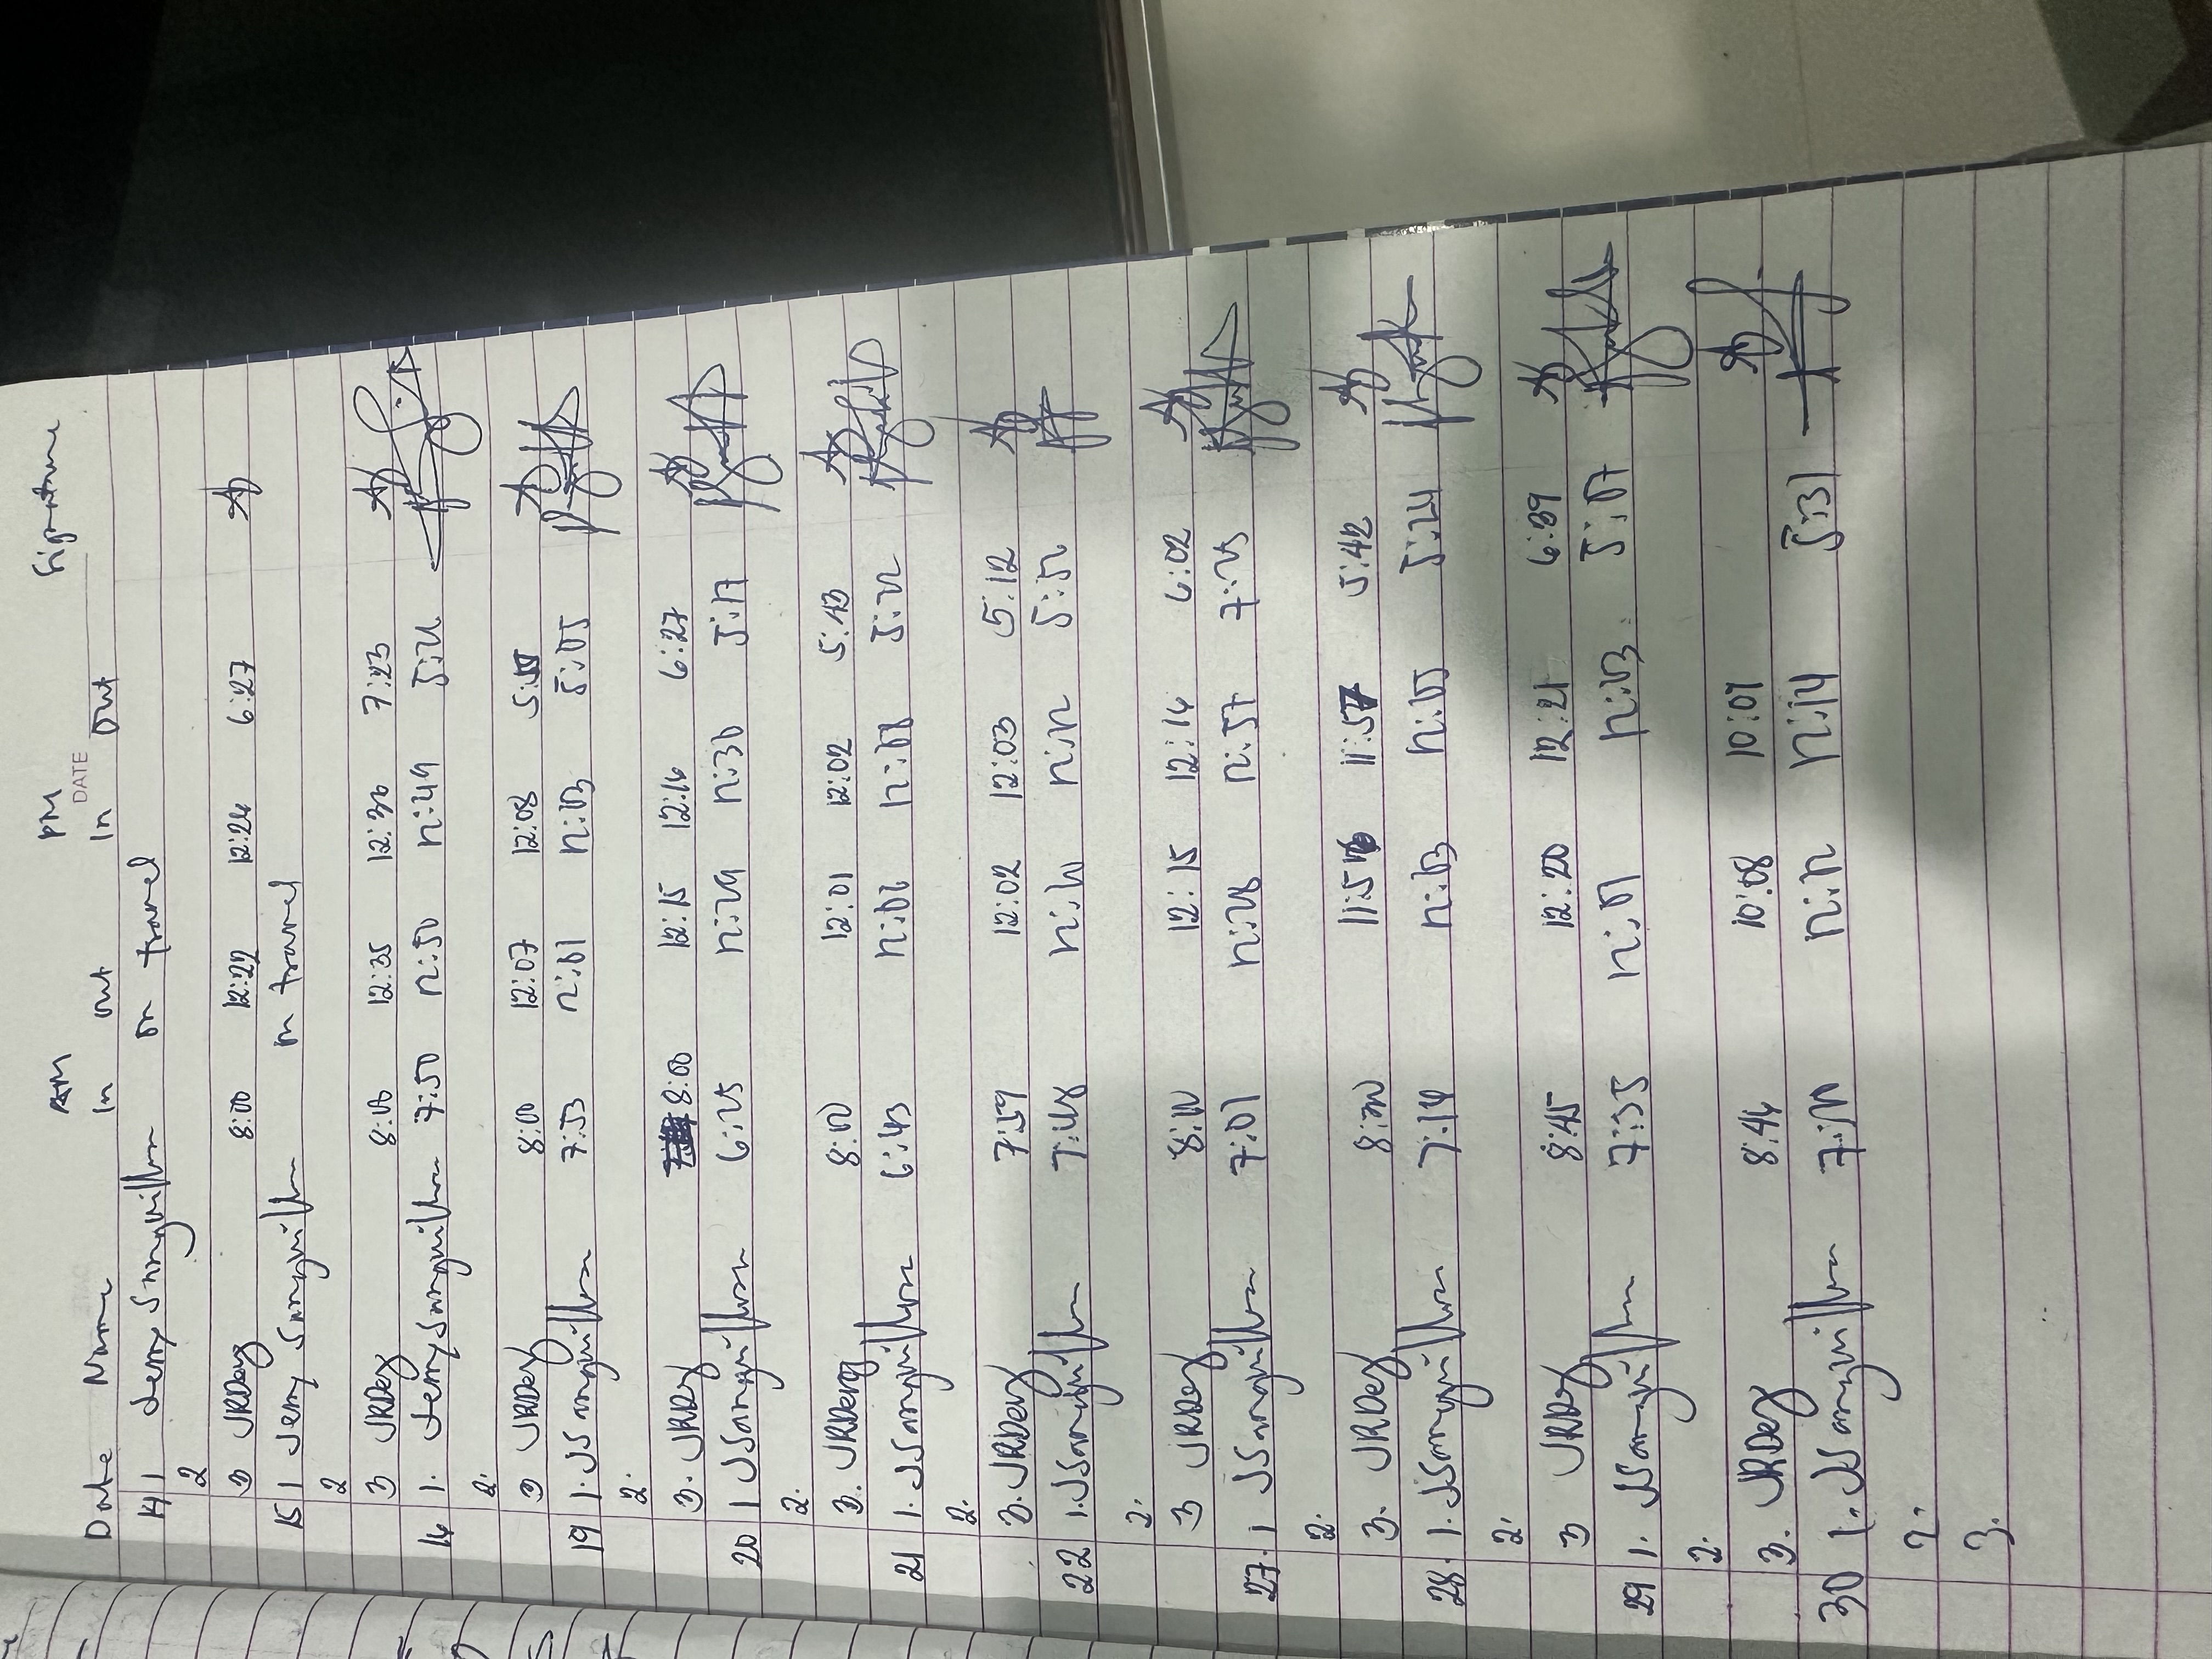 AM PM Signature
DATE
Date Name In out In out
14 1 Jerry Sanquillon on travel
2
3 JRDery 8:00 12:22 12:24 6:27
15 1 Jerry Sanquillon on travel
2
3 JRDery 8:00 12:35 12:36 7:23
16 1. Jerry Sanquillon 7:50 12:50 12:49 5:21
2.
3 JRDery 8:00 12:07 12:08
19 1. JSanquillon 7:53 12:01 12:03 5:05
2.
3. JRDery 8:00 12:15 12:16 6:27
20 1 JSanquillon 6:25 12:29 12:30 5:17
2.
3. JRDery 8:00 12:01 12:02 5:13
21 1. JSanquillon 6:43 12:06 12:08 5:22
2.
3. JRDery 7:59 12:02 12:03 5:12
22 1. JSanquillon 7:48 12:10 12:12 5:52
2.
3 JRDery 8:00 12:15 12:16 6:02
27. 1 JSanquillon 7:01 12:28 12:57 7:25
2.
3. JRDery 8:00 11:56 11:57 5:42
28. 1. JSanquillon 7:14 12:03 12:05 5:24
2.
3 JRDery 8:45 12:20 12:21 6:39
29 1. JSanquillon 7:55 12:01 12:03 5:07
2.
3. JRDery 8:46 10:08 10:09
30 1. JSanquillon 7:10 12:12 12:14 5:31
2.
3.